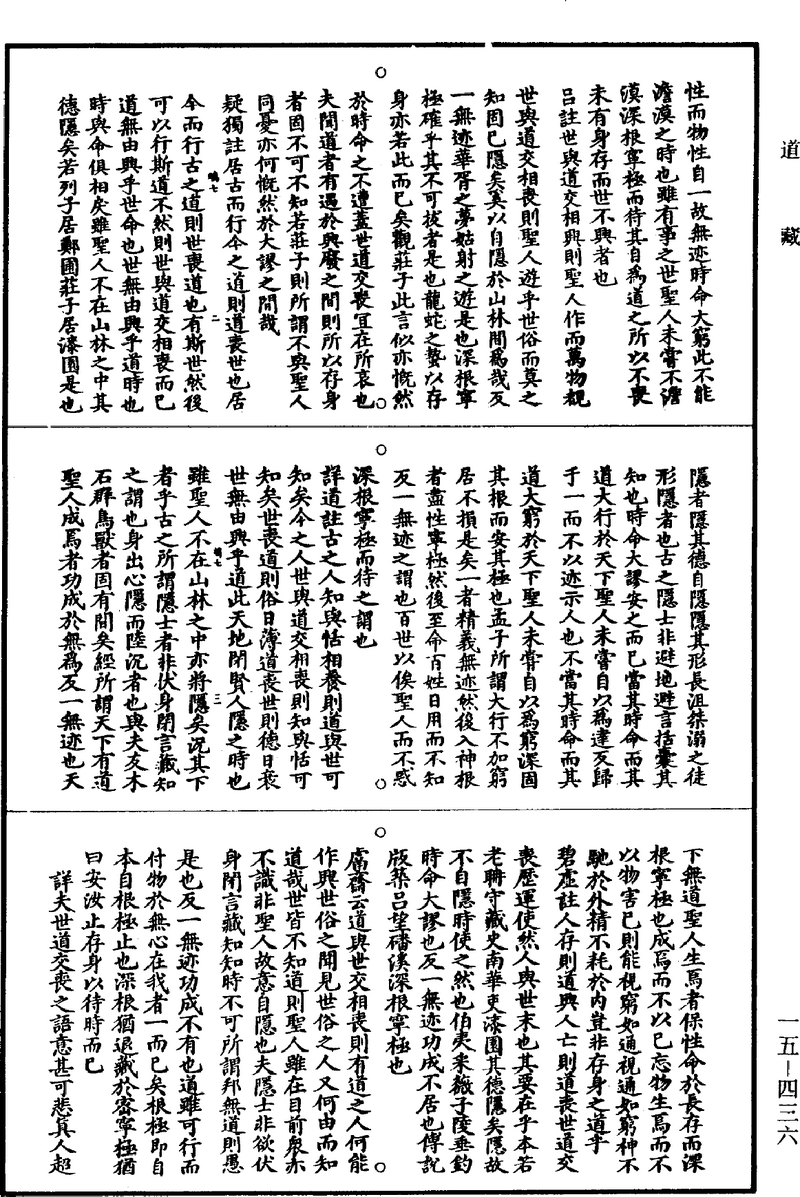 道藏
性而物性自一故無迹時命大窮此不能
澹漠之時也雖有事之世聖人未嘗不澹
漠深根寧極而待其自為道之所以不喪
未有身存而世不興者也
呂註世與道交相興則聖人作而萬物覩
世與道交相喪則聖人遊乎世俗而莫之
知固已隱矣奚以自隱於山林間為哉反
一無迹華胥之夢姑射之遊是也深根寧
極確乎其不可拔者是也龍蛇之蟄以存
身亦若此而已矣觀莊子此言似亦慨然
於時命之不遭蓋世道交喪宜在所哀也
夫聞道者有遇於興廢之間則所以存身
者固不可不知若莊子則所謂不與聖人
同憂亦何慨然於大謬之間哉
疑獨註居古而行今之道則道喪世也居
今而行古之道則世喪道也有斯世然後
可以行斯道不然則世與道交相喪而已
道無由興乎世命也世無由興乎道時也
時與命俱相戾雖聖人不在山林之中其
德隱矣若列子居鄭圃莊子居漆園是也
隱者隱其德自隱隱其形長沮桀溺之徒
形隱者也古之隱士非避地避言括囊其
知也時命大謬安之而已當其時命而其
道大行於天下聖人未嘗自以為達反歸
于一而不以迹示人也不當其時命而其
道大窮於天下聖人未嘗自以為窮深固
其根而安其極也孟子所謂大行不加窮
居不損是矣一者精義無迹然後入神根
者盡性寧極然後至命百姓日用而不知
反一無迹之謂也百世以俟聖人而不惑
深根寧極而待之謂也
詳道註古之人知與恬相養則道與世可
知矣今之人世與道交相喪則知與恬可
知矣世喪道則俗日薄道喪世則德日衰
世無由興乎道此天地閉賢人隱之時也
雖聖人不在山林之中亦將隱矣況其下
者乎古之所謂隱士者非伏身閉言藏知
之謂也身出心隱而陸沉者也與夫友木
石群鳥獸者固有間矣經所謂天下有道
聖人成焉者功成於無為反一無迹也天
下無道聖人生焉者保性命於長存而深
根寧極也成焉而不以已忘物生焉而不
以物害已則能視窮如通視通如窮神不
馳於外精不耗於內豈非存身之道乎
碧虛註人存則道興人亡則道喪世道交
喪歷運使然人與世末也其要在乎本若
老聃守藏史南華吏漆園其德隱矣隱故
不自隱時使之然也伯夷采薇子陵垂釣
時命大謬也反一無迹功成不居也傅說
版築呂望磻溪深根寧極也
鬳齋云道與世交相喪則有道之人何能
作興世俗之聞見世俗之人又何由而知
道哉世皆不知道則聖人雖在目前衆亦
不識非聖人故意自隱也夫隱士非欲伏
身閉言藏知知時不可所謂邦無道則愚
是也反一無迹功成不有也道雖可行而
付物於無心在我者一而已矣根極即自
本自根極止也深根猶退藏於密寧極猶
曰安汝止存身以待時而已
詳夫世道交喪之語意甚可悲真人超
一五—四三六